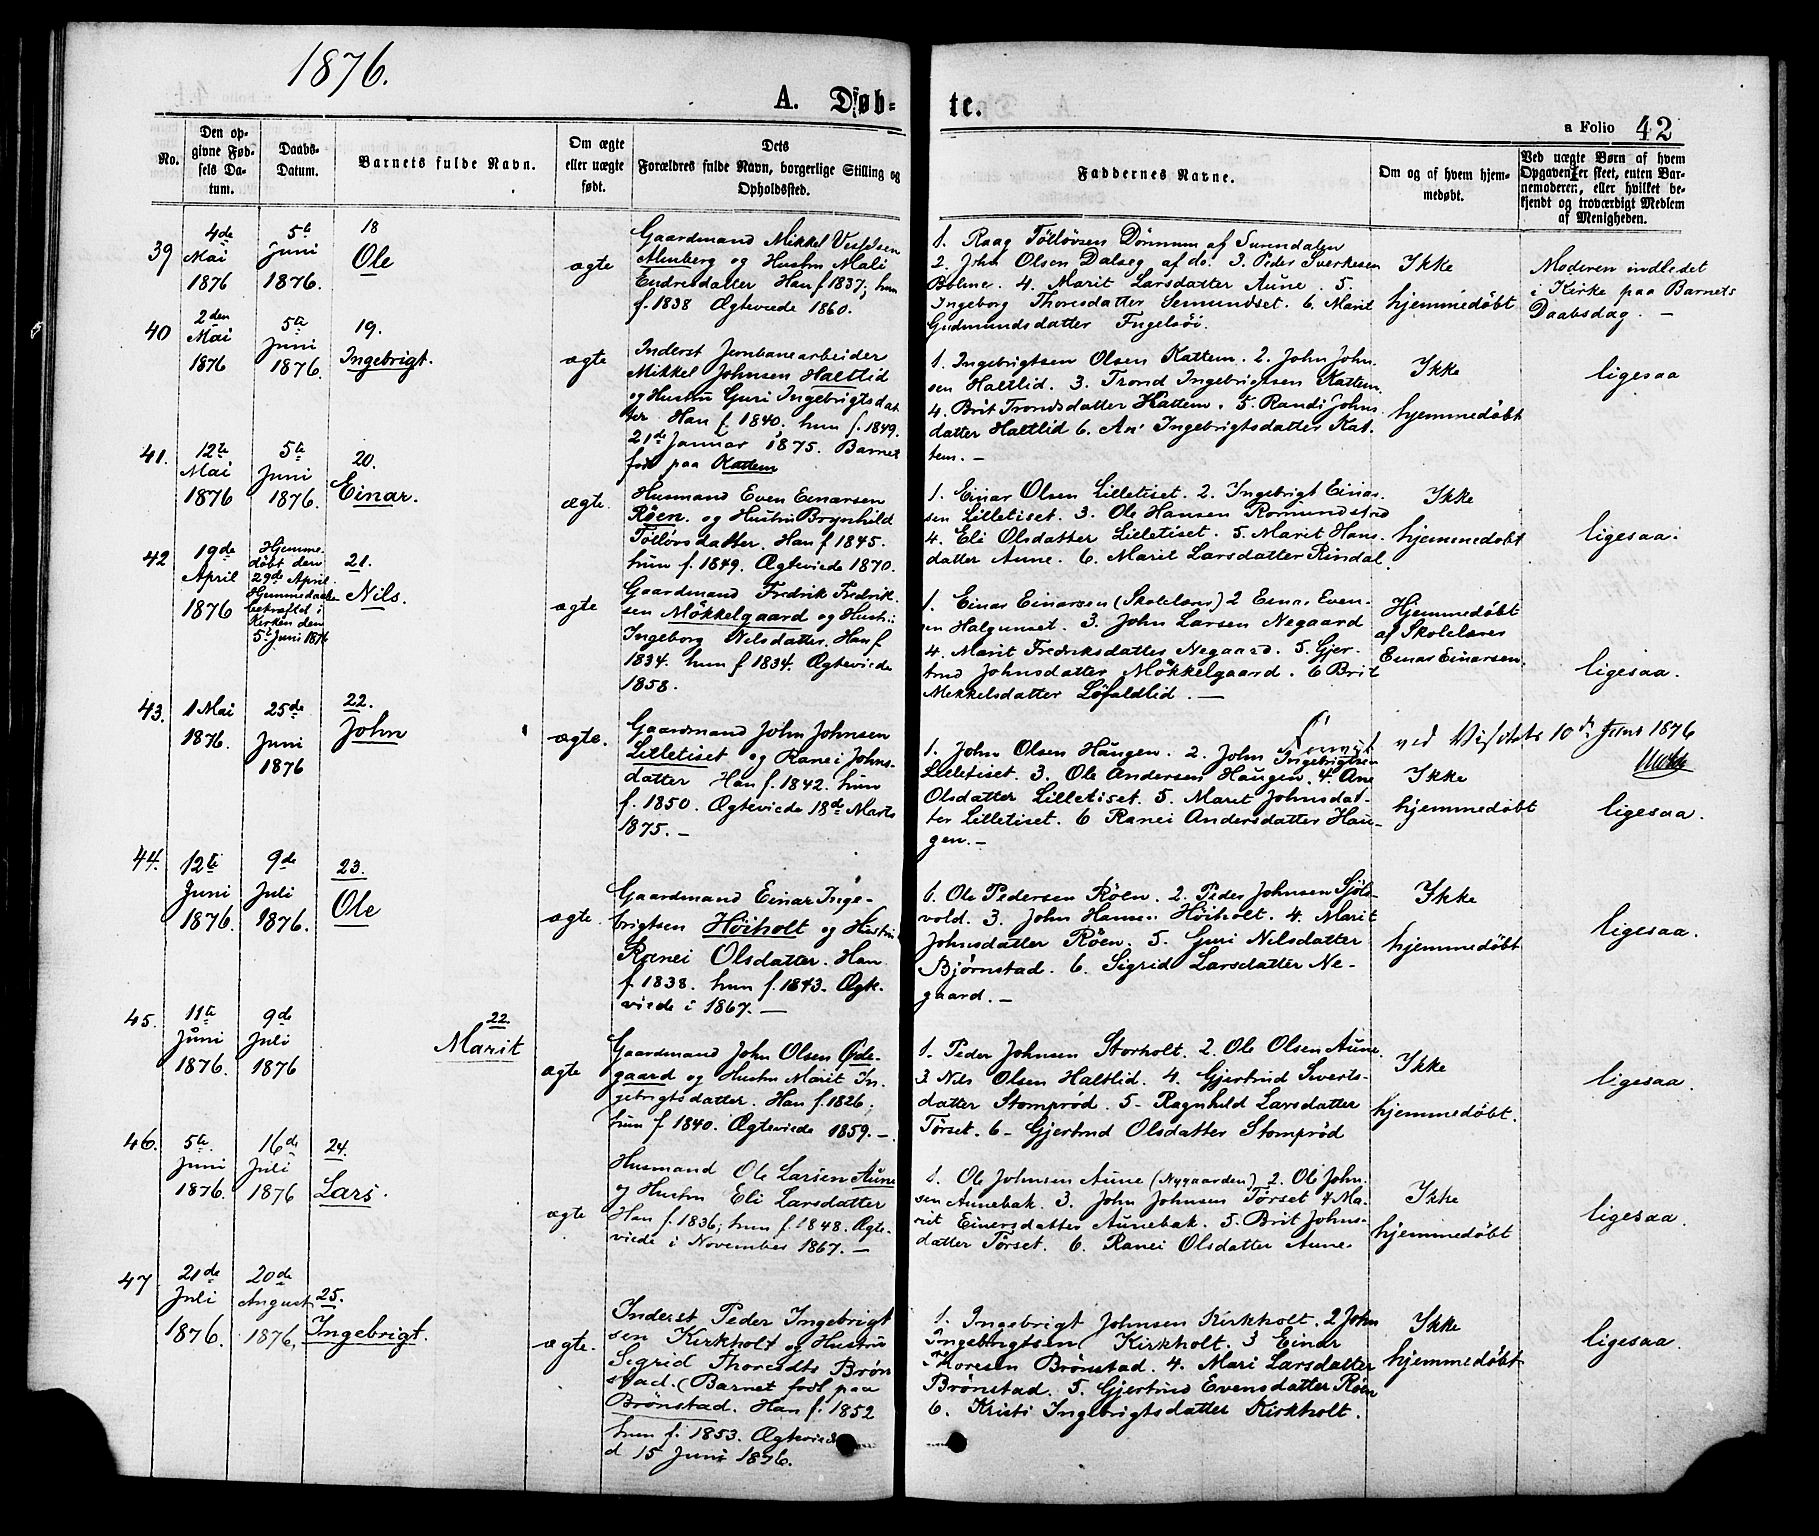 1876.
A. Døb-
te.
a Folio 42
No.
Den op-
givne Fød-
sels Da-
tum.
Daabs-
Datum.
Barnets fulde Navn.
Om ægte
eller uægte
født.
Dets
Forældres fulde Navn, borgerlige Stilling og
Opholdssted.
Faddernes Navne.
Om og af hvem hjem-
medøbt.
Ved uægte Børn af hvem
Opgaven er skeet, enten Bar-
nemoderen, eller hvilket be-
kjendt og troværdigt Medlem
af Menigheden.
39
4de
Mai
1876
5te
Juni
1876.
18
Ole
ægte
Gaardmand Mikkel
Alenberg og Hustru Mali
Endresdatter Han f 1837; hun
f. 1838 Ægteviede 1860.
1. Raag Tøtlövsen Dönnum af Surendalen
2. John Olsen Dalseg af do. 3. Peder Sverkesen
Bolme. 4. Marit Larsdatter Aune. 5.
Ingeborg Thoresdatter Semundset. 6. Marit
Gudmundsdatter
Ikke
hjemmedøbt
Moderen indledet
i Kirke paa Barnets
Daabsdag. —
40
2den
Mai
1876
5te
Juni
1876.
19.
Ingebrigt.
ægte
Inderst Jernbanearbeider
Mikkel Johnsen Haltlid
og Hustru Guri Ingebrigtsdat
ter. Han f 1840, hun f. 1849.
21de Januar 1875. Barnet
født paa Kattem
1. Ingebrigtsen Olsen Kattem. 2. John John-
sen Haltlid. 3. Trond Ingebrigtsen Kattem.
4. Brit Trondsdatter Kattem. 5. Randi Johns-
datter Haltlid 6. An Ingebrigtsdatter Kat-
tem. —
Ikke
hjemmedøbt
ligesaa
41.
12te
Mai
1876
5te
Juni
1876.
20.
Einar.
ægte.
Husmand Even Einarsen
Röen. og Hustru Brynhild
Tøtlövsdatter. Han f 1845.
hun f. 1849. Ægteviede 1870.
1. Einar Olsen Lilletiset. 2. Ingebrigt Einar-
sen Lilletiset. 3. Ole Hansen Romundstad
4. Eli Olsdatter Lilletiset. 5. Marit Hans-
datter Aune. 6. Marit Larsdatter Rindal.
Ikke
hjemmedøbt
ligesaa.
42
19de
April
1876
Hjemme-
døbt den
29de April.
Hjemmedaaben
bekræftet i
Kirken den
5te Juni 1876
21.
Nils.
ægte
Gaardmand Fredrik Fredrik-
sen Mökkelgaard og Hustru
Ingeborg Nilsdatter. Han f
1834. hun f 1834. Ægteviede
1858.
1. Einar Einarsen (Skolelærer) 2 Einar Even-
sen Halgunset. 3. John Larsen Negaard
4. Marit Fredriksdatter Negaard. 5. Gjer-
trud Johnsdatter Mökkelgaard. 6 Brit
Mikkelsdatter Löfaldlid. —
Hjemmedøbt
af Skolelærer
Einar Einarsen.
ligesaa.
ved Visitats 10de Juni 1876
43.
1 Mai
1876.
25de
Juni
1876
22.
John
ægte.
Gaardmand John Johnsen
Lilletiset og Ranei Johns-
datter Han f. 1842. hun
f. 1850. Ægteviede 18de Marts
1875. —
1. John Olsen Haugen. 2. John Ingebrigtsen
Lilletiset. 3. Ole Andersen Haugen. 4. Ane
Olsdatter Lilletiset. 5. Marit Johnsdat-
ter Lilletiset. 6 Ranei Andersdatter Hau-
gen. —
Ikke
hjemmedøbt
ligesaa.
44.
12te
Juni
1876.
9de
Juli
1876.
23.
Ole
ægte.
Gaardmand Einar Inge-
brigtsen Höiholt og Hustru
Ranei Olsdatter. Han
f. 1838. hun f. 1843. Ægte-
viede i 1867. —
1. Ole Pedersen Röen. 2. Peder Johnsen Sjöls-
vold. 3. John Hansen Höiholt. 4. Marit
Johnsdatter Röen. 5. Guri Nilsdatter
Bjørnstad. 6. Sigrid Larsdatter Ne-
gaard. —
Ikke
hjemmedøbt
ligesaa.
45.
11te
Juni
1876.
9de
Juli
1876
22.
Marit
ægte
Gaardmand John Olsen Öde-
gaard og Hustru Marit In-
gebrigtsdatter. Han f. 1826;
hun f. 1840. Ægteviede 1859. —
1. Peder Johnsen Storholt. 2. Ole Olsen Aune.
3 Nils Olsen Haltlid. 4. Gjertrud Siverts-
datter Stomprød. 5- Ragnhild Larsdatter
Tørset. 6- Gjertrud Olsdatter Stomprød
Ikke
hjemmedøbt.
ligesaa.
46.
5te
Juni
1876.
16de
Juli
1876
24.
Lars.
ægte
Husmand Ole Larsen Aune
og Hustru Eli Larsdatter
Han f. 1836; hun f. 1848. Ægte-
viede i November 1867. —
1. Ole Johnsen Aune (Nygaarden) 2. Ole John-
sen Aunebak. 3. John Johnsen Tørset 4 Ma-
rit Einersdatter Aunebak. 5. Brit Johns-
datter Tørset. 6. Ranei Olsdatter Aune.
Ikke
hjemmedøbt
ligesaa.
47
21de
Juli
1876.
20de
August
1876.
25.
Ingebrigt.
ægte.
Inderst Peder Ingebrigt
sen Kirkholt og Hustru
Sigrid Thoresdtr Brön
stad. (Barnet født paa
Brönstad. Han f. 1852
hun f. 1853. Ægteviede
d 15 Juni 1876.
1. Ingebrigt Johnsen Kirkholt. 2 John
Ingebrigtsen Kirkholt. 3 Einar
Thoresen Brönstad. 4. Mari Larsdatter
Brönstad. 5. Gjertrud Evensdatter Röen
6. Kristi Ingebrigtsdatter Kirkholt.
Ikke
hjemmedøbt
ligesaa.